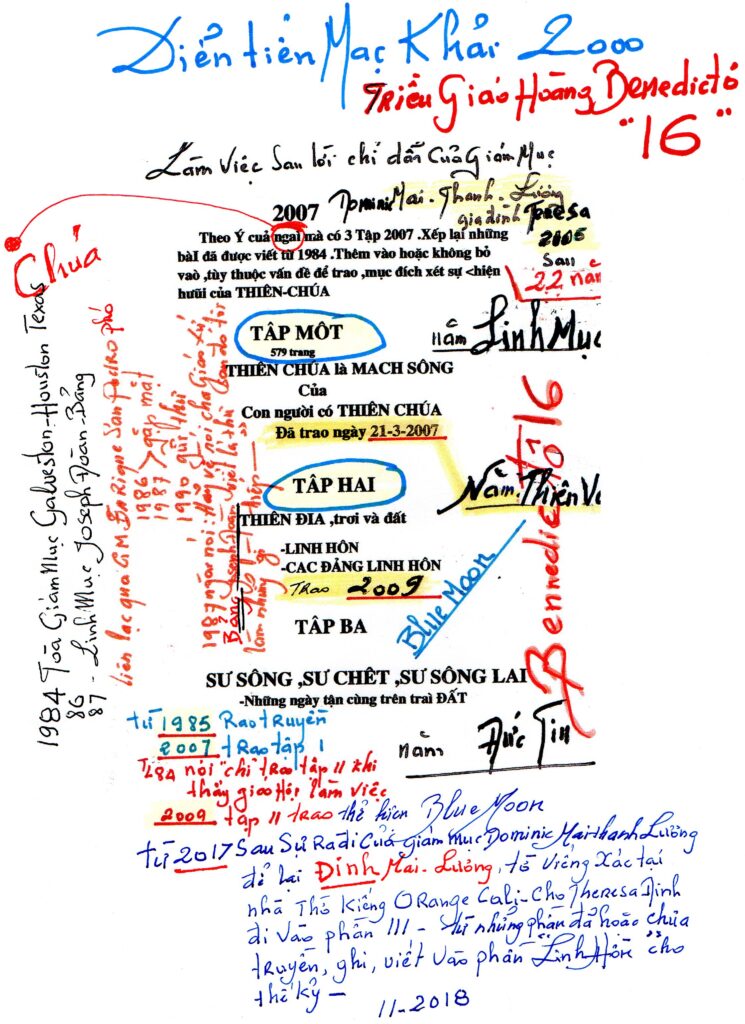 Diễn tiến Mạc Khải 2000
Triều Giáo Hoàng Benedictô
"16"
Làm Việc Sau lời chỉ dẩn Của Giám Mục
2007 Dominic Mai-Thanh-Lương
gia đình Teresa
2006
Sau
22 năm
Theo Ý cuả ngaì mà có 3 Tập 2007 .Xếp lại những
bàI đã được viết từ 1984 .Thêm vào hoặc không bỏ
vaò ,tùy thuộc vấn đề để trao ,mục đích xét sự <hiện
hưũi của THIÊN-CHÚA
Chúa
TÂP MÔT
579 trang
năm Linh Mục
THIÊN CHÚA là MACH SÔNG
Của
Con người có THIÊN CHÚA
Đã trao ngày 21-3-2007
TÂP HAI
Năm Thiên
THIÊN ĐIA ,trơi và đất
-LINH HÔN
-CAC ĐẢNG LINH HÔN
Trao 2009
Blue Moon
TÂP BA
Bennedictô 16
SƯ SÔNG ,SƯ CHÊT ,SƯ SÔNG LAI
-Những ngày tận cùng trên traì ĐẤT
1984 Tòa Giám Mục Galveston-Houston Texas
86
87 - Linh Mục Joseph Đoàn-Bảng
liên lạc qua G.M. EnRique San Pedro phó
1986
1987 > gặp mặt
1990 gửi thư
1987 ngài nói: Hảy về nói cha Giáo Xứ
Bảng Joseph-Đoàn viết lá thư
làm những gì
từ 1985 Rao truyền
2007 trao tập 1
T/84 nói "chỉ trao tập II khi
thấy giáo Hội làm việc
2009 tập II trao thể hiên Blue Moon
năm Đức Tin
từ 2017 Sau Sự Ra đi Của Giám mục Dominic Mai thanh Lương
để lại Đinh Mai-Lương, từ Viếng Xác tại
nhà Thờ Kiếng ORange Cali-Cho Theresa Đinh
đi Vào phần III - từ những phần đả hoặc chưa
truyền, ghi, viết vào phần Linh Hồn cho
thế kỷ -
11-2018